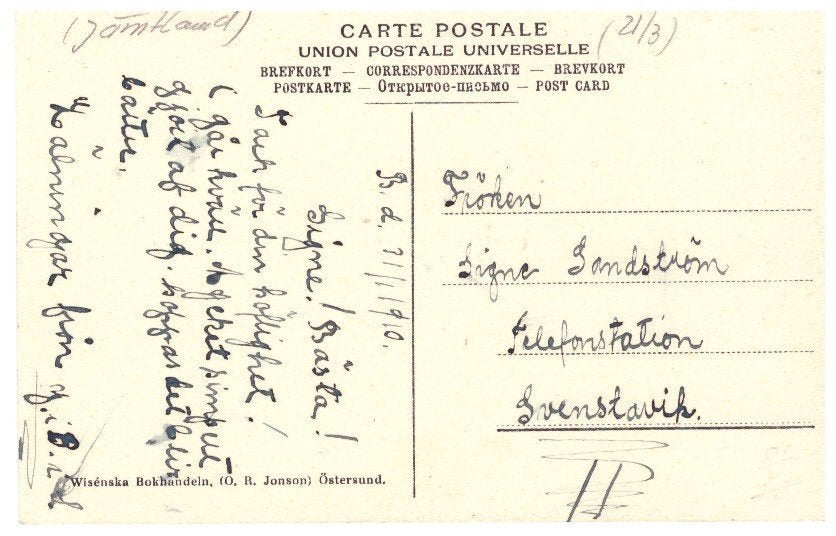 (Jämtland)
(21/3)
CARTE POSTALE
UNION POSTALE UNIVERSELLE
BREFKORT — CORRESPONDENZKARTE — BREVKORT
POSTKARTE — Открытое-письмо — POST CARD
B. d. 21/1 1910.
Signe! Bästa!
Tack för din höflighet!
i går kväll. Mycket simpelt
gjort af dig, hoppas det blir
bättre.
Hälningar från
Fröken
Signe Sandström
Telefonstation
Svenstavik.
Wisénska Bokhandeln, (O. R. Jonson) Östersund.